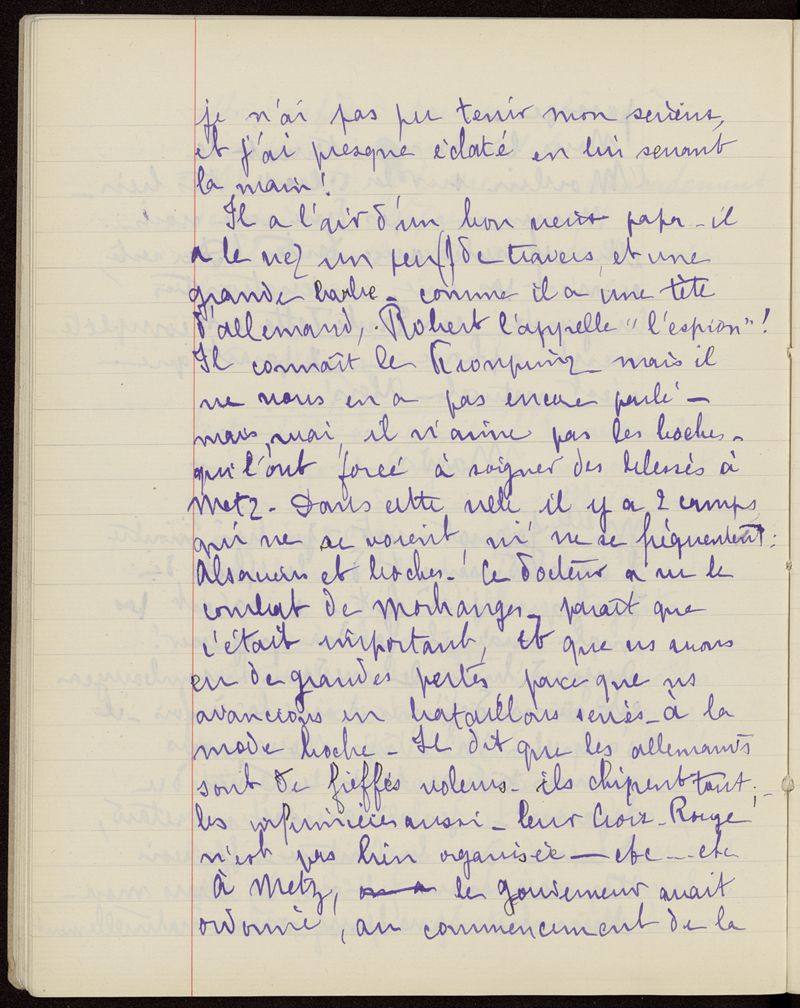 je n'ai pas pu tenir mon sérieux,
et j'ai presque éclaté en lui serrant
la main !
Il a l'air d'un bon vieux papa - il
a le nez un peu () de travers, et une
grande barbe - comme il a une tête
d'allemand, Robert l'appelle "l'espion" !
Il connaît le Kronprinz - mais il
ne nous en a pas encore parlé -
mais, vrai, il n'aime pas les boches -
qui l'ont forcé à soigner des blessés à
Metz - Dans cette ville il y a 2 camps
qui ne se voient ni ne se fréquentent :
Alsaciens et boches - Ce docteur a vu le
combat de Morhanges - paraît que
c'était important, et que ns avons
eu de grandes pertes, parce que ns
avancions en bataillons serrés - à la
mode boche - Il dit que les allemands
sont de fieffés voleurs - ils chipent tout ; -
les infirmières aussi - leur Croix-Rouge
n'est pas bien organisée — etc - etc
À Metz, le gouverneur avait
ordonné, au commencement de la